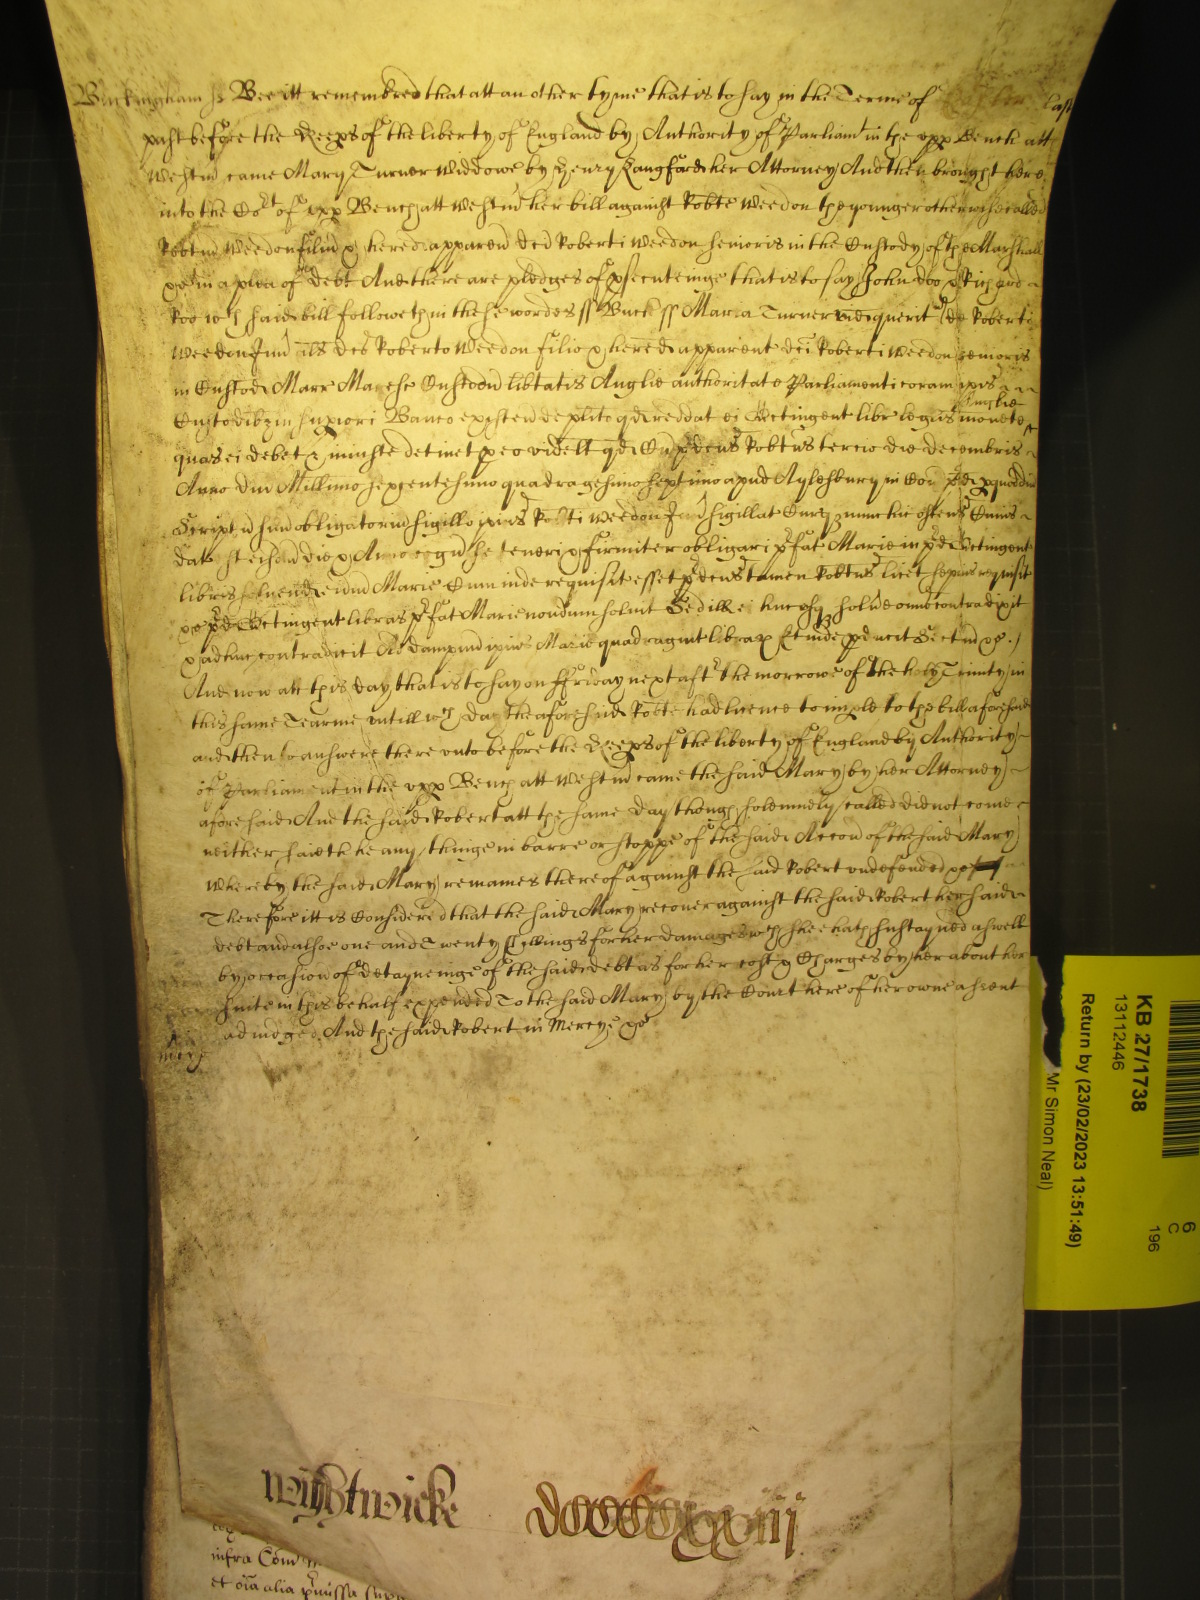 Buckingham ss Bee itt remembred that att an other tyme that is to say in the Terme of last
past before the Keeps of the liberty of England by Authority of Parliamt in the upp Bench att
Westm came Mary Turner Widdowe by Henry Langford her Attorney And then brought here
into the Cort of upp Bench att Westm her bill against Robte Weedon the younger otherwise called
Robtm Weedon filiu & hered apparen dci Roberti Weedon senioris in the Custody of the Marshall
&c in a plea of debt And there are pledges of psecuteinge that is to say John doo & Richard
Roo wch said bill followeth in these wordes ss Buck ss Maria Turner vid querit de Roberto
Weedon Jun als dco Roberto Weedon filio & hered apparent dci Roberti Weedon senioris
in Custod Marr Maresc Custodu libtatis Anglie authoritate Parliamenti coram ipis
Custodibz in supiori Banco existen de plito qd reddat ei Octingent libr legalis monete Anglie
quas ei debet & iniuste detinet p eo videlt qd Cu pdcus Robtus tercio die decembris
Anno dni Millimo sexcentesimo quadragesimo septimo apud Aylesbury in Com pd p quoddm
Script suu obligatoriu sigillo ipius Robti Weedon Jun sigillat Curq nunc hic ostens Cuius
dat est eisdm die & Anno cogn se teneri & firmiter obligari pfat Marie in pd Octingent
libris solvend eidm Marie Cum inde requisit esset pdcus tamen Robtus licet sepius requisit
&c pd Octingent libras pfat Marie nondum solvit Sed ill ei hucusq solvere omino contradixit
& adhuc contradicit Ad dampnu ipius Marie quadragint librar Et inde pducit Sectam &c
And now att this day that is to say on ffriday next aftr the morrowe of the holy Trinity in
this same Tearme untill wch day the aforesaid Robte had licence to imple to the bill aforesaid
and then to answere there unto before the Keeps of the liberty of England by Authority
of Parliament in the upp Bench att Westm came the said Mary by her Attorney
aforesaid And the said Robert att the same day though solemnely called did not come
neither saieth he any thinge in barre or stoppe of the said Accon of the said Mary
whereby the said Mary remaines thereof against the said Robert undefended &c
Therefore itt is Considered that the said Mary recover against the said Robert her said
debt and alsoe one and Twenty Shillings for her damages wch shee hath sustayned aswell
by occasion of detayneinge of the said debt as for her costs & Charges by her about her
suite in this behalf expended To the said Mary by the Court here of her owne assent
adiudged And the said Robert in Mercye &c
mcye
Wightwicke
infra Com
et oia alia pmissa sup
KB 27/1738
13112446
Return by (23/02/2023 13:51:49)
Mr Simon Neal)
6
C
196